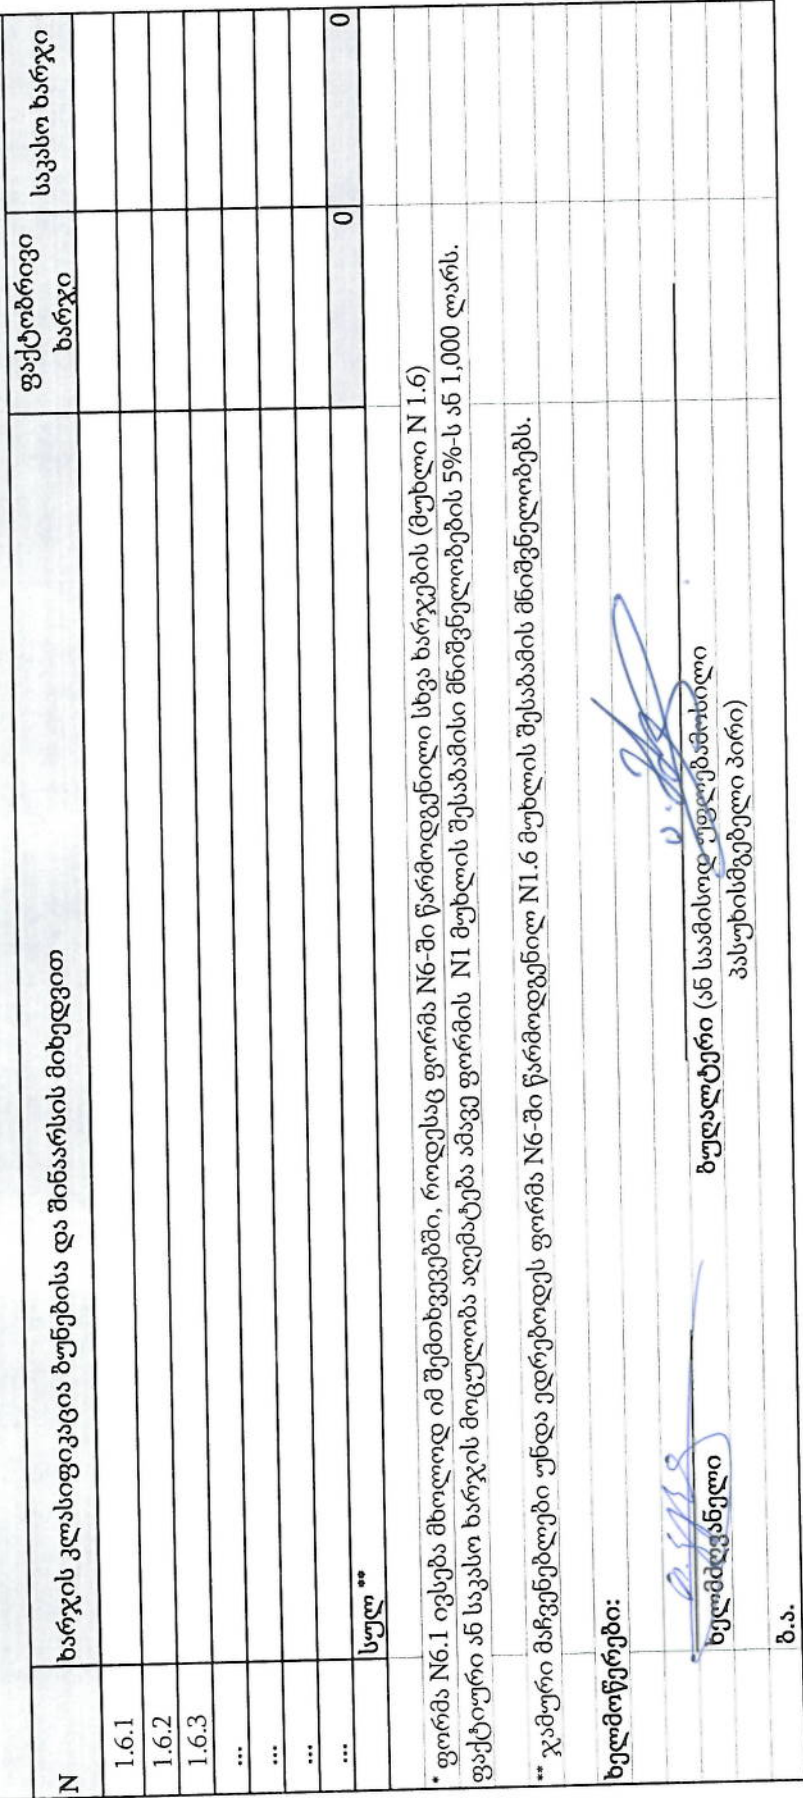 N ხარჯის კლასიფიკაცია ბუნებისა და შინაარსის მიხედვით ფაქტობრივი ხარჯი საკასო ხარჯი
1.6.1
1.6.2
1.6.3
...
...
...
...
სულ ** 0 0
* ფორმა N6.1 ივსება მხოლოდ იმ შემთხვევებში, როდესაც ფორმა N6-ში წარმოდგენილი სხვა ხარჯების (მუხლი N 1.6)
ფაქტიური ან საკასო ხარჯის მოცულობა აღემატება ამავე ფორმის N1 მუხლის შესაბამისი მნიშვნელობების 5%-ს ან 1,000 ლარს.
** ჯამური მაჩვენებლები უნდა ედრებოდეს ფორმა N6-ში წარმოდგენილ N1.6 მუხლის შესაბამის მნიშვნელობებს.
ხელმოწერები:
ხელმძღვანელი ბუღალტერი (ან საამისოდ უფლებამოსილი
პასუხისმგებელი პირი)
ბ.ა.